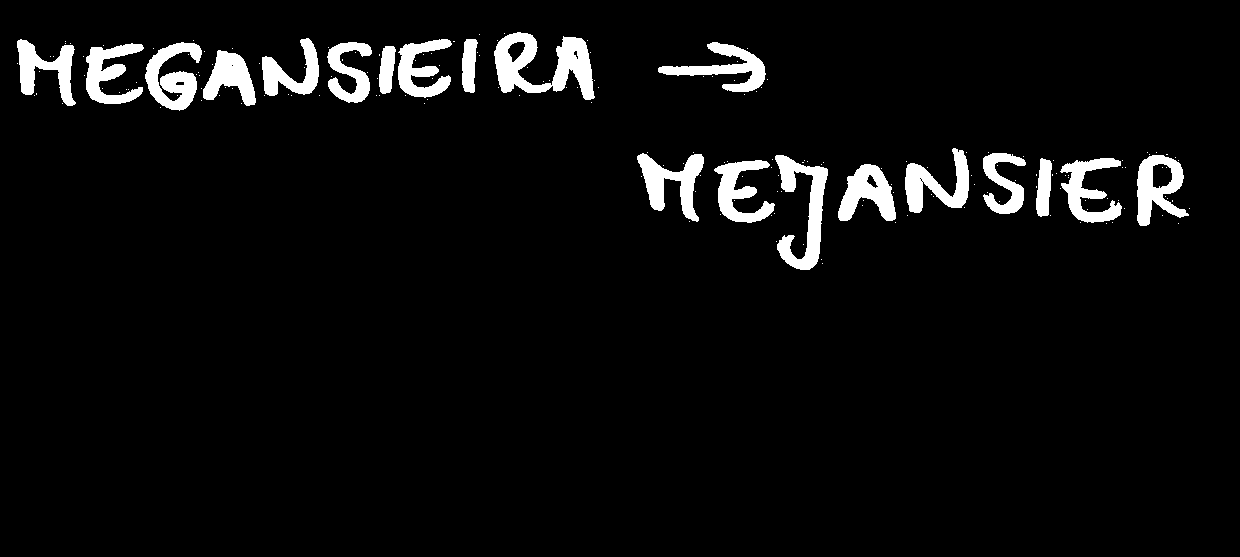 MEGANSIEIRA →
MEJANSIER